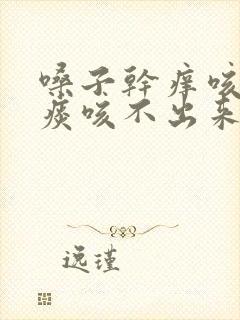 嗓子幹痒咳
痰咳不出来
逸瑾